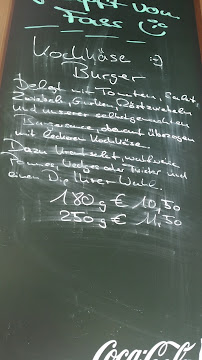 vom
Fass
Kochkäse
Burger
Belegt mit Tomaten, Salat,
Zwiebeln, Gurken, Röstzwiebeln
und unserer selbstgemachten
Burgersauce, überzogen
mit leckerem Kochkäse.
Dazu Krautsalat, wahlweise
Pommes, Wedges oder Twister und
einen Dip Ihrer Wahl.
180g € 10,50
250g € 11,50
Coca-Cola